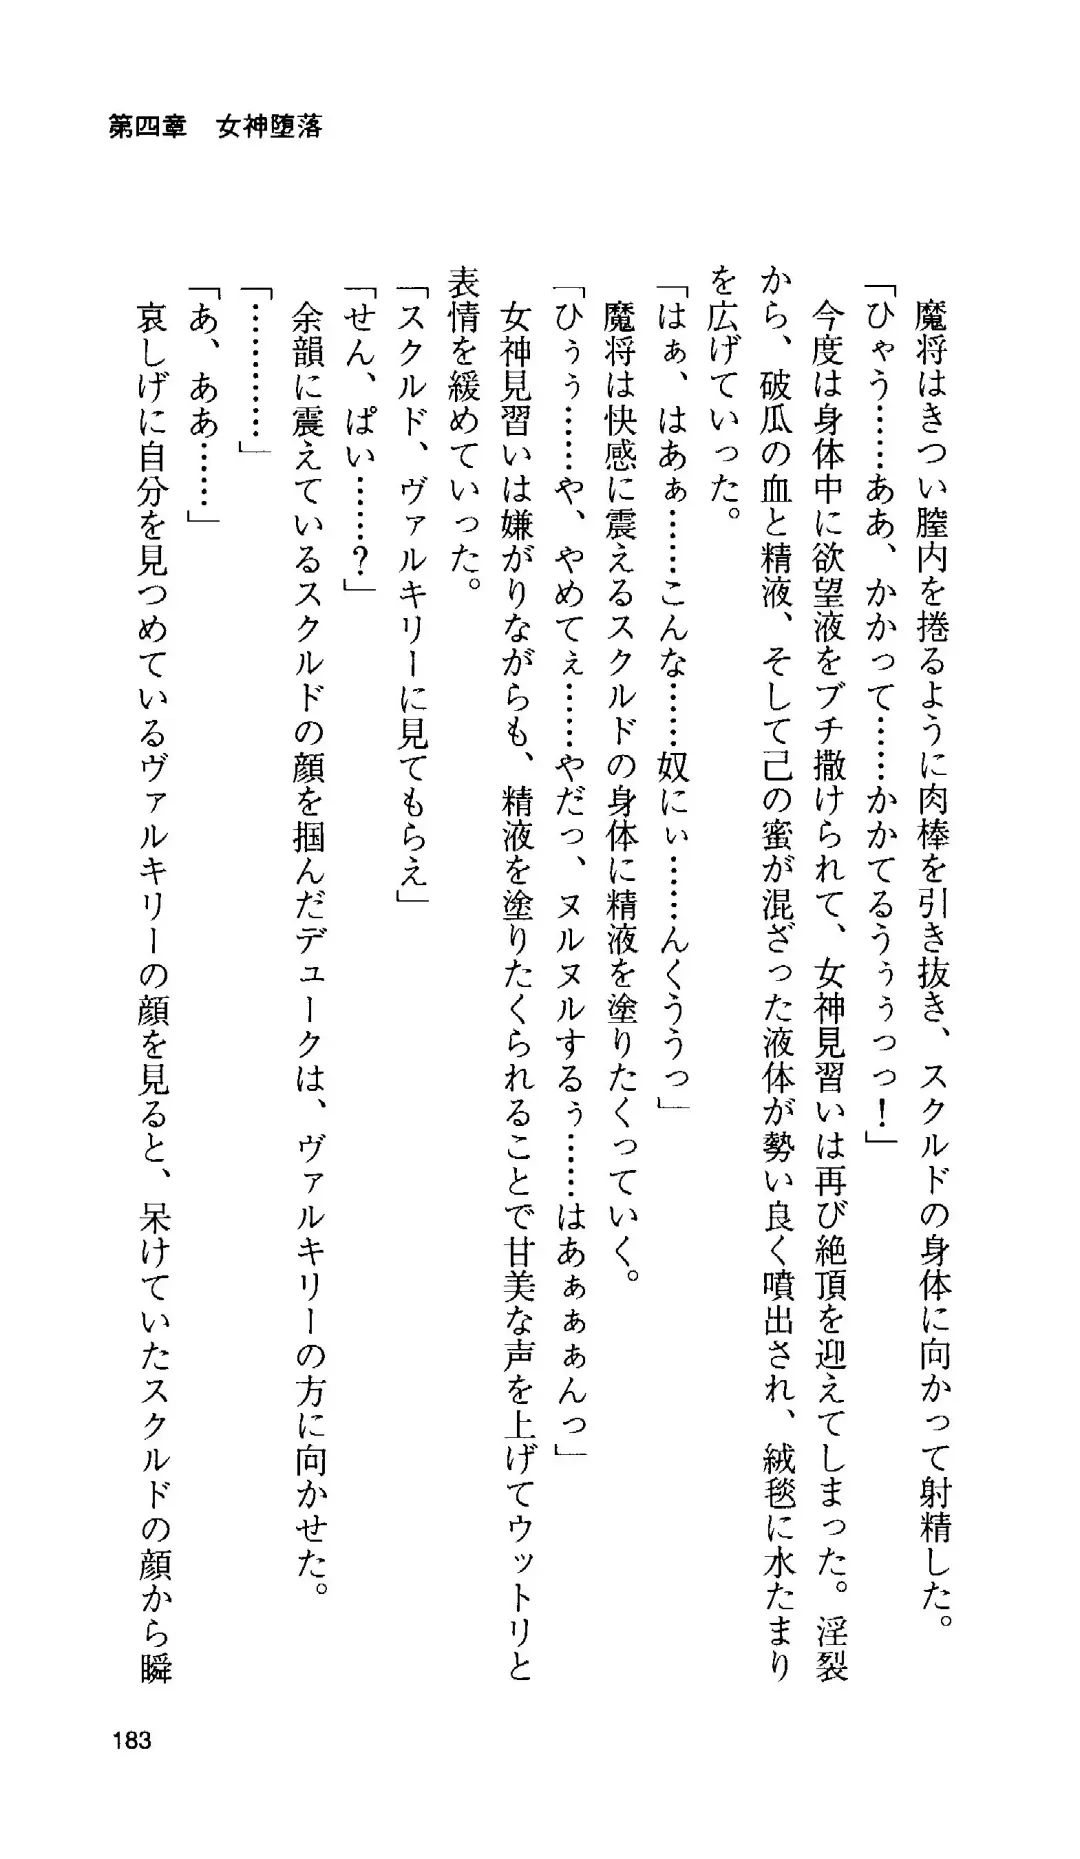 第四章　女神堕落
　魔将はきつい膣内を捲るように肉棒を引き抜き、スクルドの身体に向かって射精した。
「ひゃう……ああ、かかって……かかてるうぅぅっっ！」
　今度は身体中に欲望液をブチ撒けられて、女神見習いは再び絶頂を迎えてしまった。淫裂
から、破瓜の血と精液、そして己の蜜が混ざった液体が勢い良く噴出され、絨毯に水たまり
を広げていった。
「はぁ、はあぁ……こんな……奴にぃ……んくううっ」
　魔将は快感に震えるスクルドの身体に精液を塗りたくっていく。
「ひぅぅ……や、やめてぇ……やだっ、ヌルヌルするぅ……はあぁぁぁんっ」
　女神見習いは嫌がりながらも、精液を塗りたくられることで甘美な声を上げてウットリと
表情を緩めていった。
「スクルド、ヴァルキリーに見てもらえ」
「せん、ぱい……？」
　余韻に震えているスクルドの顔を掴んだデュークは、ヴァルキリーの方に向かせた。
「…………」
「あ、ああ……」
　哀しげに自分を見つめているヴァルキリーの顔を見ると、呆けていたスクルドの顔から瞬
183